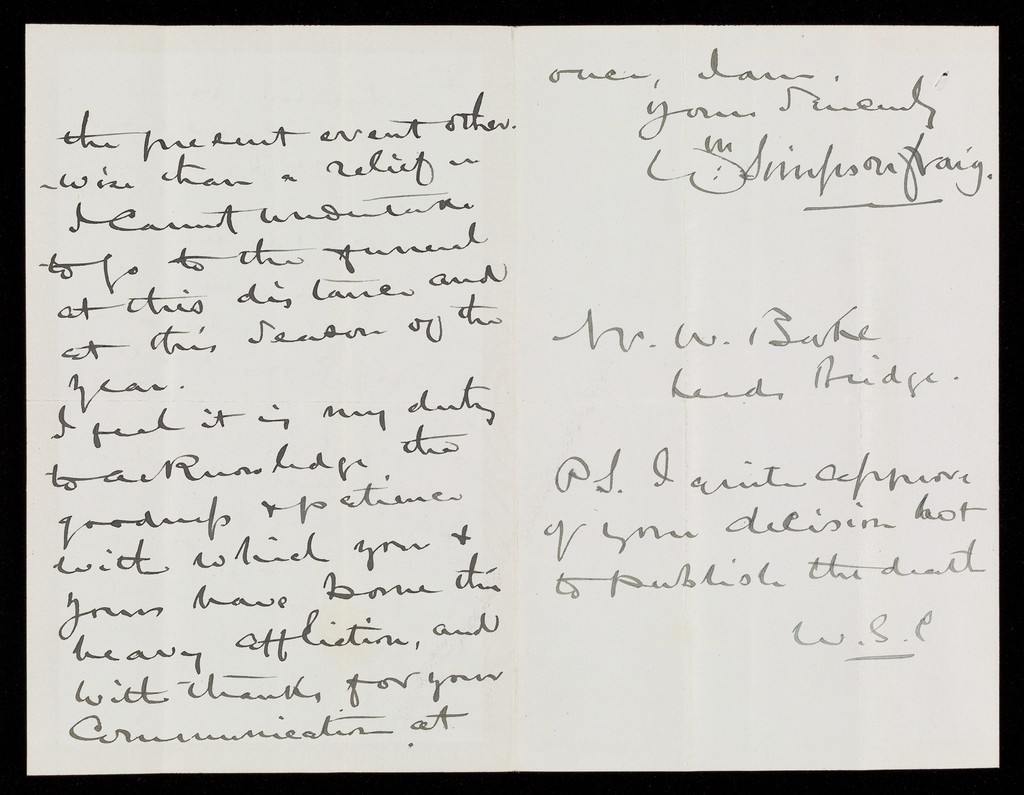 the present event other-
-wise than a relief
I Cannot undertake
to go to the funeral
at this distance and
at this season of the
year.
I feel it is my duty
to acknowledge the
goodness & patience
with which you &
yours have borne this
heavy affliction, and
with thanks for your
Communication at
once, I am,
yours sincerely
Wm: Simpson Craig.
W. Bake
Leeds Bridge.
P.S. I quite approve
of your decision not
to publish the death
W.S.C